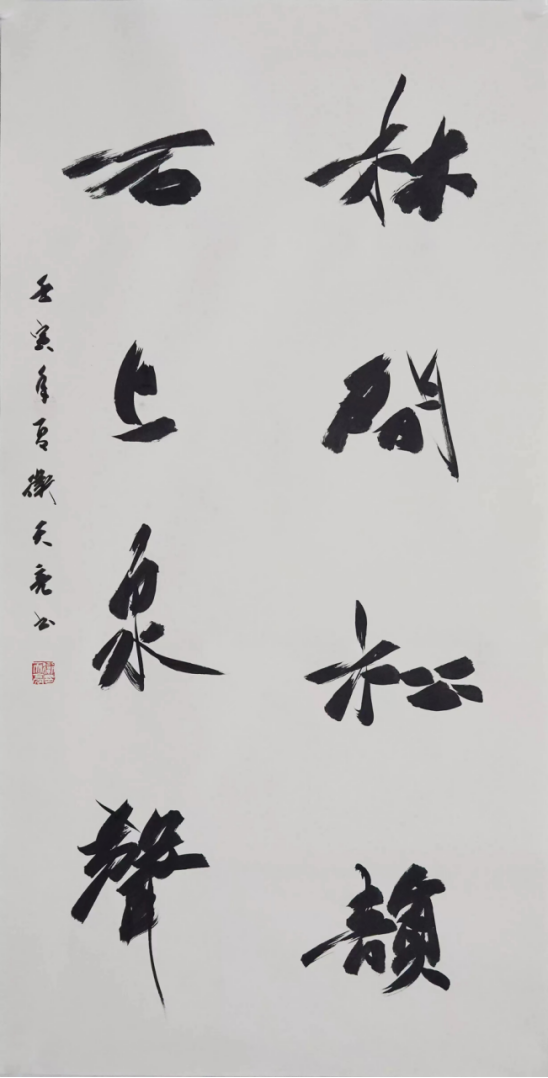 林間松韻
石上泉聲
壬寅年夏衛天亮书